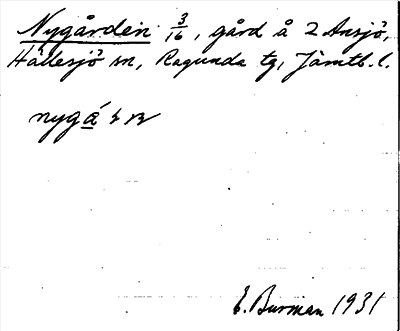 Nygården 3/16, gård å 2 Ansjö,
Hällesjö sn, Ragunda tg, Jämtb. l.
nygá
E. Burman 1931